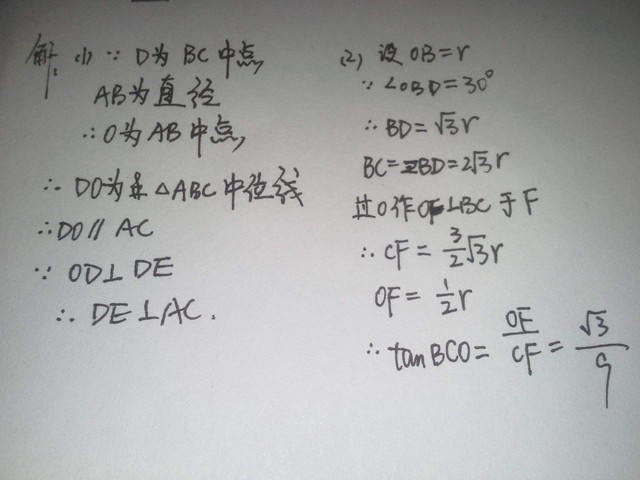 解: (1) ∵ D为BC中点,
AB为直径
∴O为AB中点,
∴ DO为△ABC中位线
∴DO∥AC
∵ OD⊥DE
∴ DE⊥AC.
(2) 设OB=r
∵ ∠OBD=30°
∴ BD=√3r
BC=2BD=2√3r
过O作OF⊥BC于F
∴ CF=3/2√3r
OF=1/2r
∴ tanBCO=OF/CF=√3/9